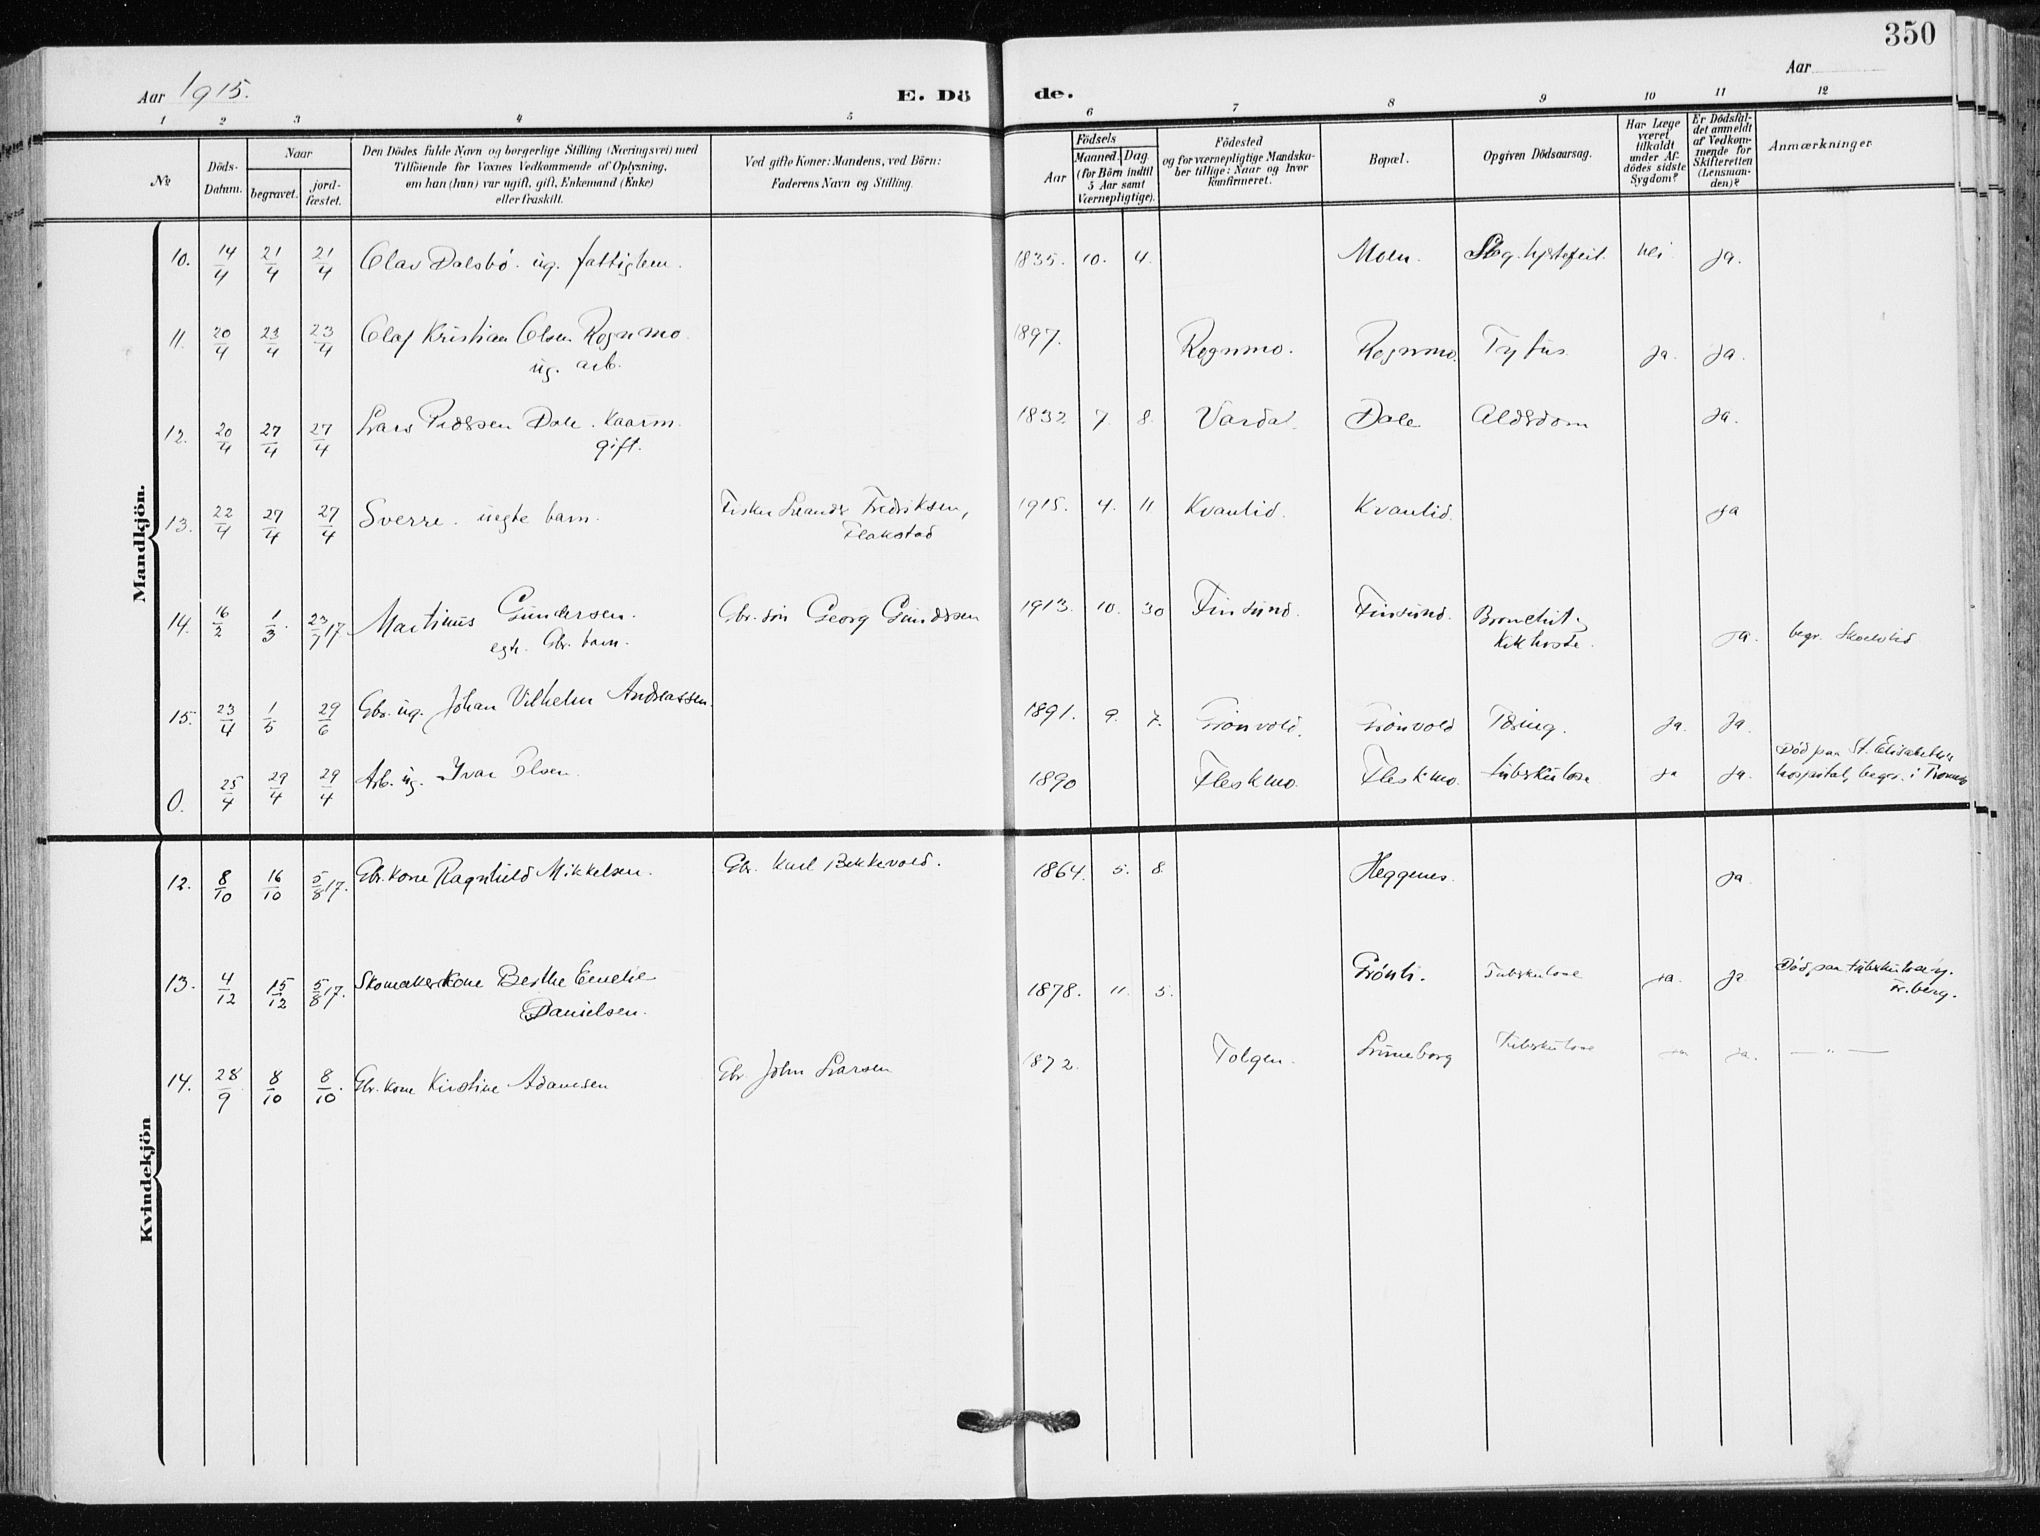 350
Aar 1915.
E. Dö
de.
Aar
1 2 3 4 5 6 7 8 9 10 11 12
No
Döds-
Datum.
Naar
begravet.
jord-
fæstet.
Den Dödes fulde Navn og borgerlige Stilling (Næringsvei) med
Tilföiende for Voxnes Vedkommende af Oplysning,
om han (hun) var ugift, gift, Enkemand (Enke)
eller fraskilt.
Ved gifte Koner: Mandens, ved Börn:
Faderens Navn og Stilling.
Aar
Födsels
Maaned. Dag.
(for Börn indtil
5 Aar samt
Værnepligtige).
Födested
og for værnepligtige Mandska-
ber tillige: Naar og hvor
konfirmeret.
Bopæl.
Opgiven Dödsaarsag.
Har Læge
været
tilkaldt
under Af-
dödes sidste
Sygdom?
Er Dödsfal-
det anmeldt
af Vedkom-
mende for
Skifteretten
(Lensman-
den)?
Anmærkninger
Mandkjön.
10. 14/4 21/4 21/4 Olav Dalsbö. ug. fattiglem. 1835. 10. 4. Moen. hjertefeil. nei ja.
11. 20/4 23/4 23/4 Olaf Kristian Olsen Rognmo. 1897. Rognmo. Rognmo. Tyfus. ja. ja.
ug. arb.
12. 20/4 27/4 27/4 Lars Pedersen Dale. Kaarm. 1832 7. 8. Vardal. Dale Alderdom ja.
gift.
13. 22/4 27/4 27/4 Sverre. uegte barn. Fisker Leander Fredriksen, 1915. 4. 11 Kvantid. Kvantid. ja
Flakstad
14. 16/2 1/3. 23/7 17 Martinus Gundersen. Gbr. sön Georg Gundersen 1913. 10. 30 Finsund. Finsund. Bronchit,
egte. Gbr. barn. Kikhoste. ja. begr. Skoelvlid
15. 23/4 1/5 29/6 Gbr. ug. Johan Vilhelm Andreassen. 1891. 9. 7. Grönvold. Grönvold Tæring. ja. ja.
0. 25/4 29/4 29/4 Arb. ug. Ivar Olsen. 1890 Fleskmo. Fleskmo. tuberkulose ja ja. Död paa St. Elisabeths
hospital, begr. i Tromsø
Kvindekjön
12. 8/10 16/10 5/8 17. Gbr. kone Ragnhild Mikkelsen. Gbr. Karl Bekkevold. 1864. 5. 8. Heggenes. ja.
13. 4/12 15/12 5/8 17. Skomakerkone Berthe Emelie 1878. 11. 5. Grönli. Tuberkulose ja. ja. Död paa tuberkulosehj.
Danielsen.
14. 28/9 8/10 8/10. Gbr. kone Kirstine Adamsen Gbr. John Larsen 1872. Tolgen. Luneborg tuberkulose ja ja. — " —